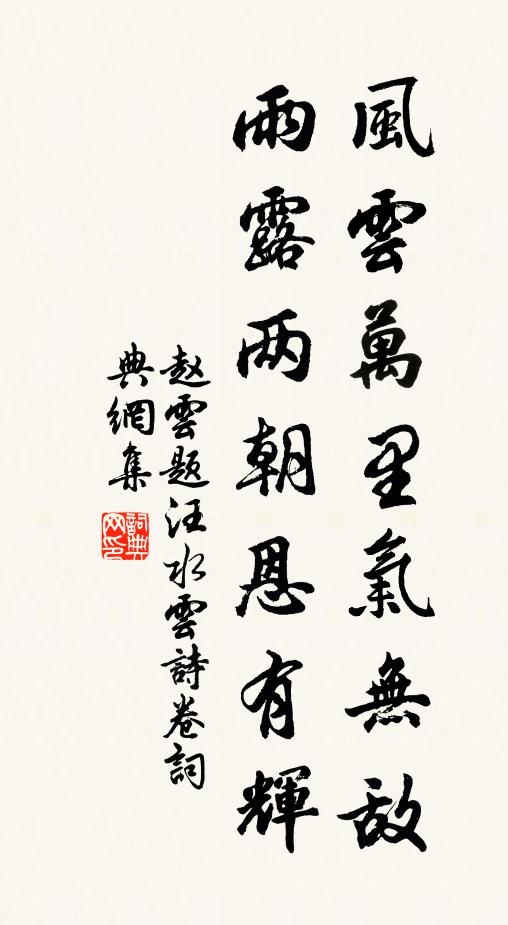 風雲萬里氣無敵
雨露两朝恩有輝
赵雲题汪水雲詩卷詞
典網集
詞典网印